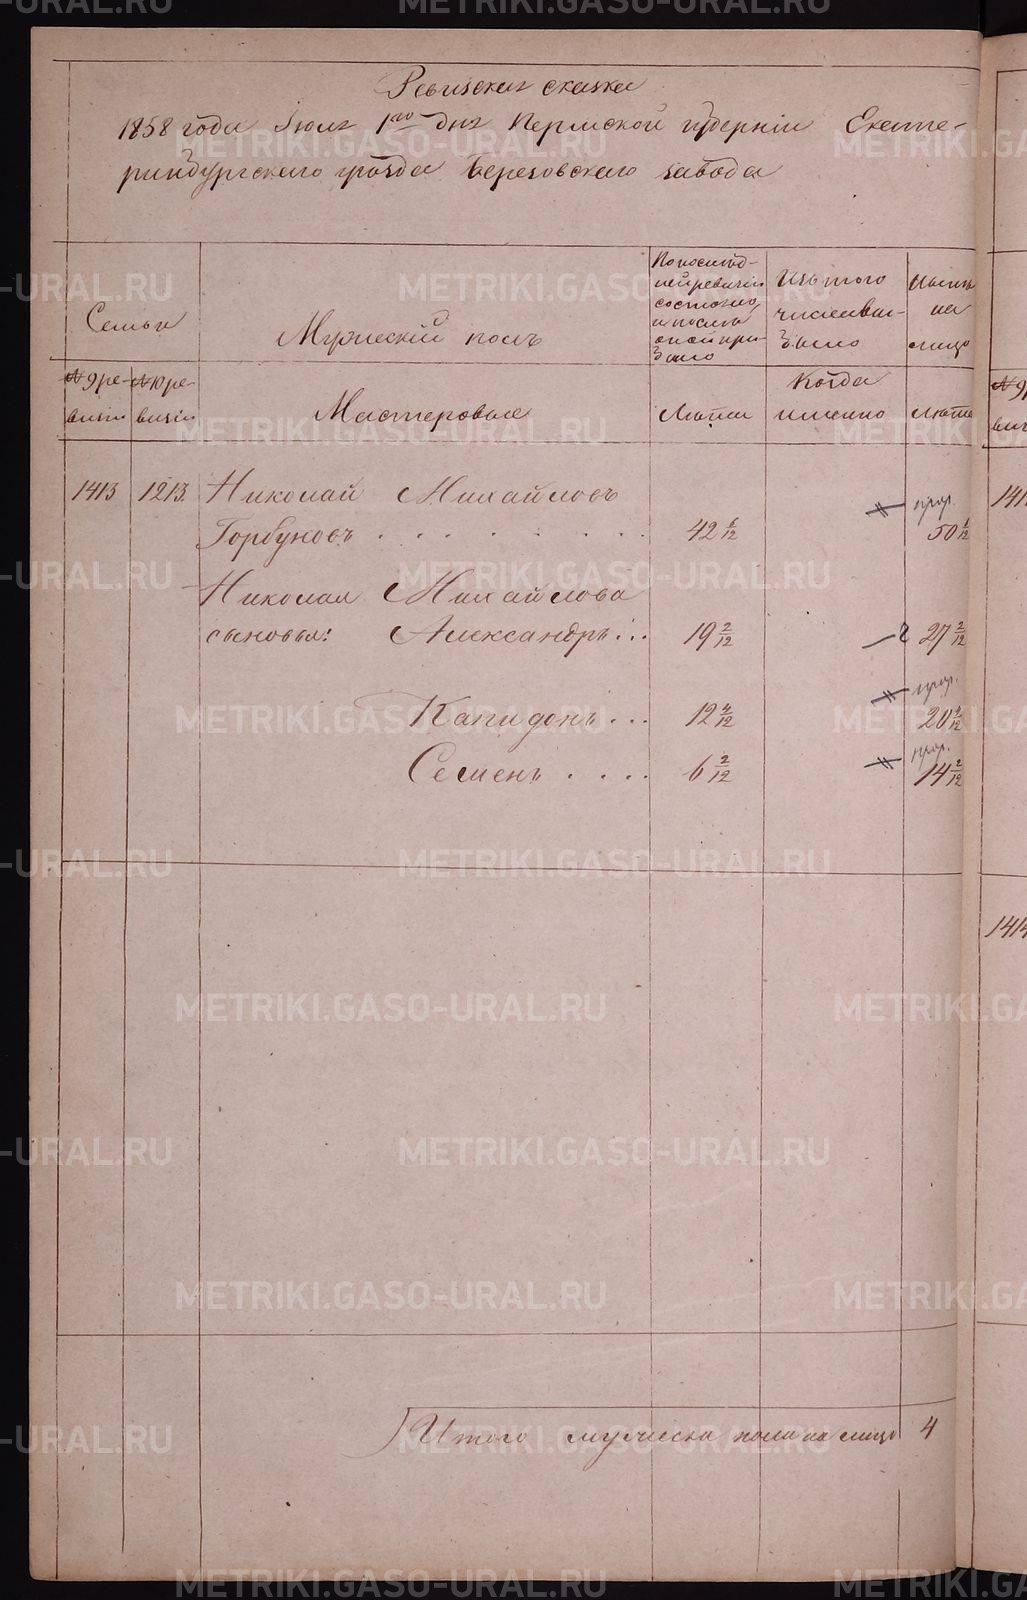 Ревизская сказка
1858 года Июля 1го дня Пермской губернии Екате-
ринбургскаго уезда Березовскаго завода
Семьи
Мужеский полъ
По послед-
ней ревизiи
состояло
и после
оной при-
было
Изъ того
числа вы-
было
Ныне
на
лицо
№ 9 ре-
визiи
№ 10 ре-
визiи
Мастеровые
Лета
Когда
именно
Лета
1413 1213. Николай Михайловъ
Горбуновъ . . . . . . . 42 6/12 50 1/12
Николая Михайлова
сыновья: Александръ ... 19 2/12 27 2/12
Капидонъ ... 12 4/12 20 4/12
Семенъ .... 6 2/12 14 2/12
Итого мужеска пола на лицо 4
№ 9
1414
METRIKI.GASO-URAL.RU